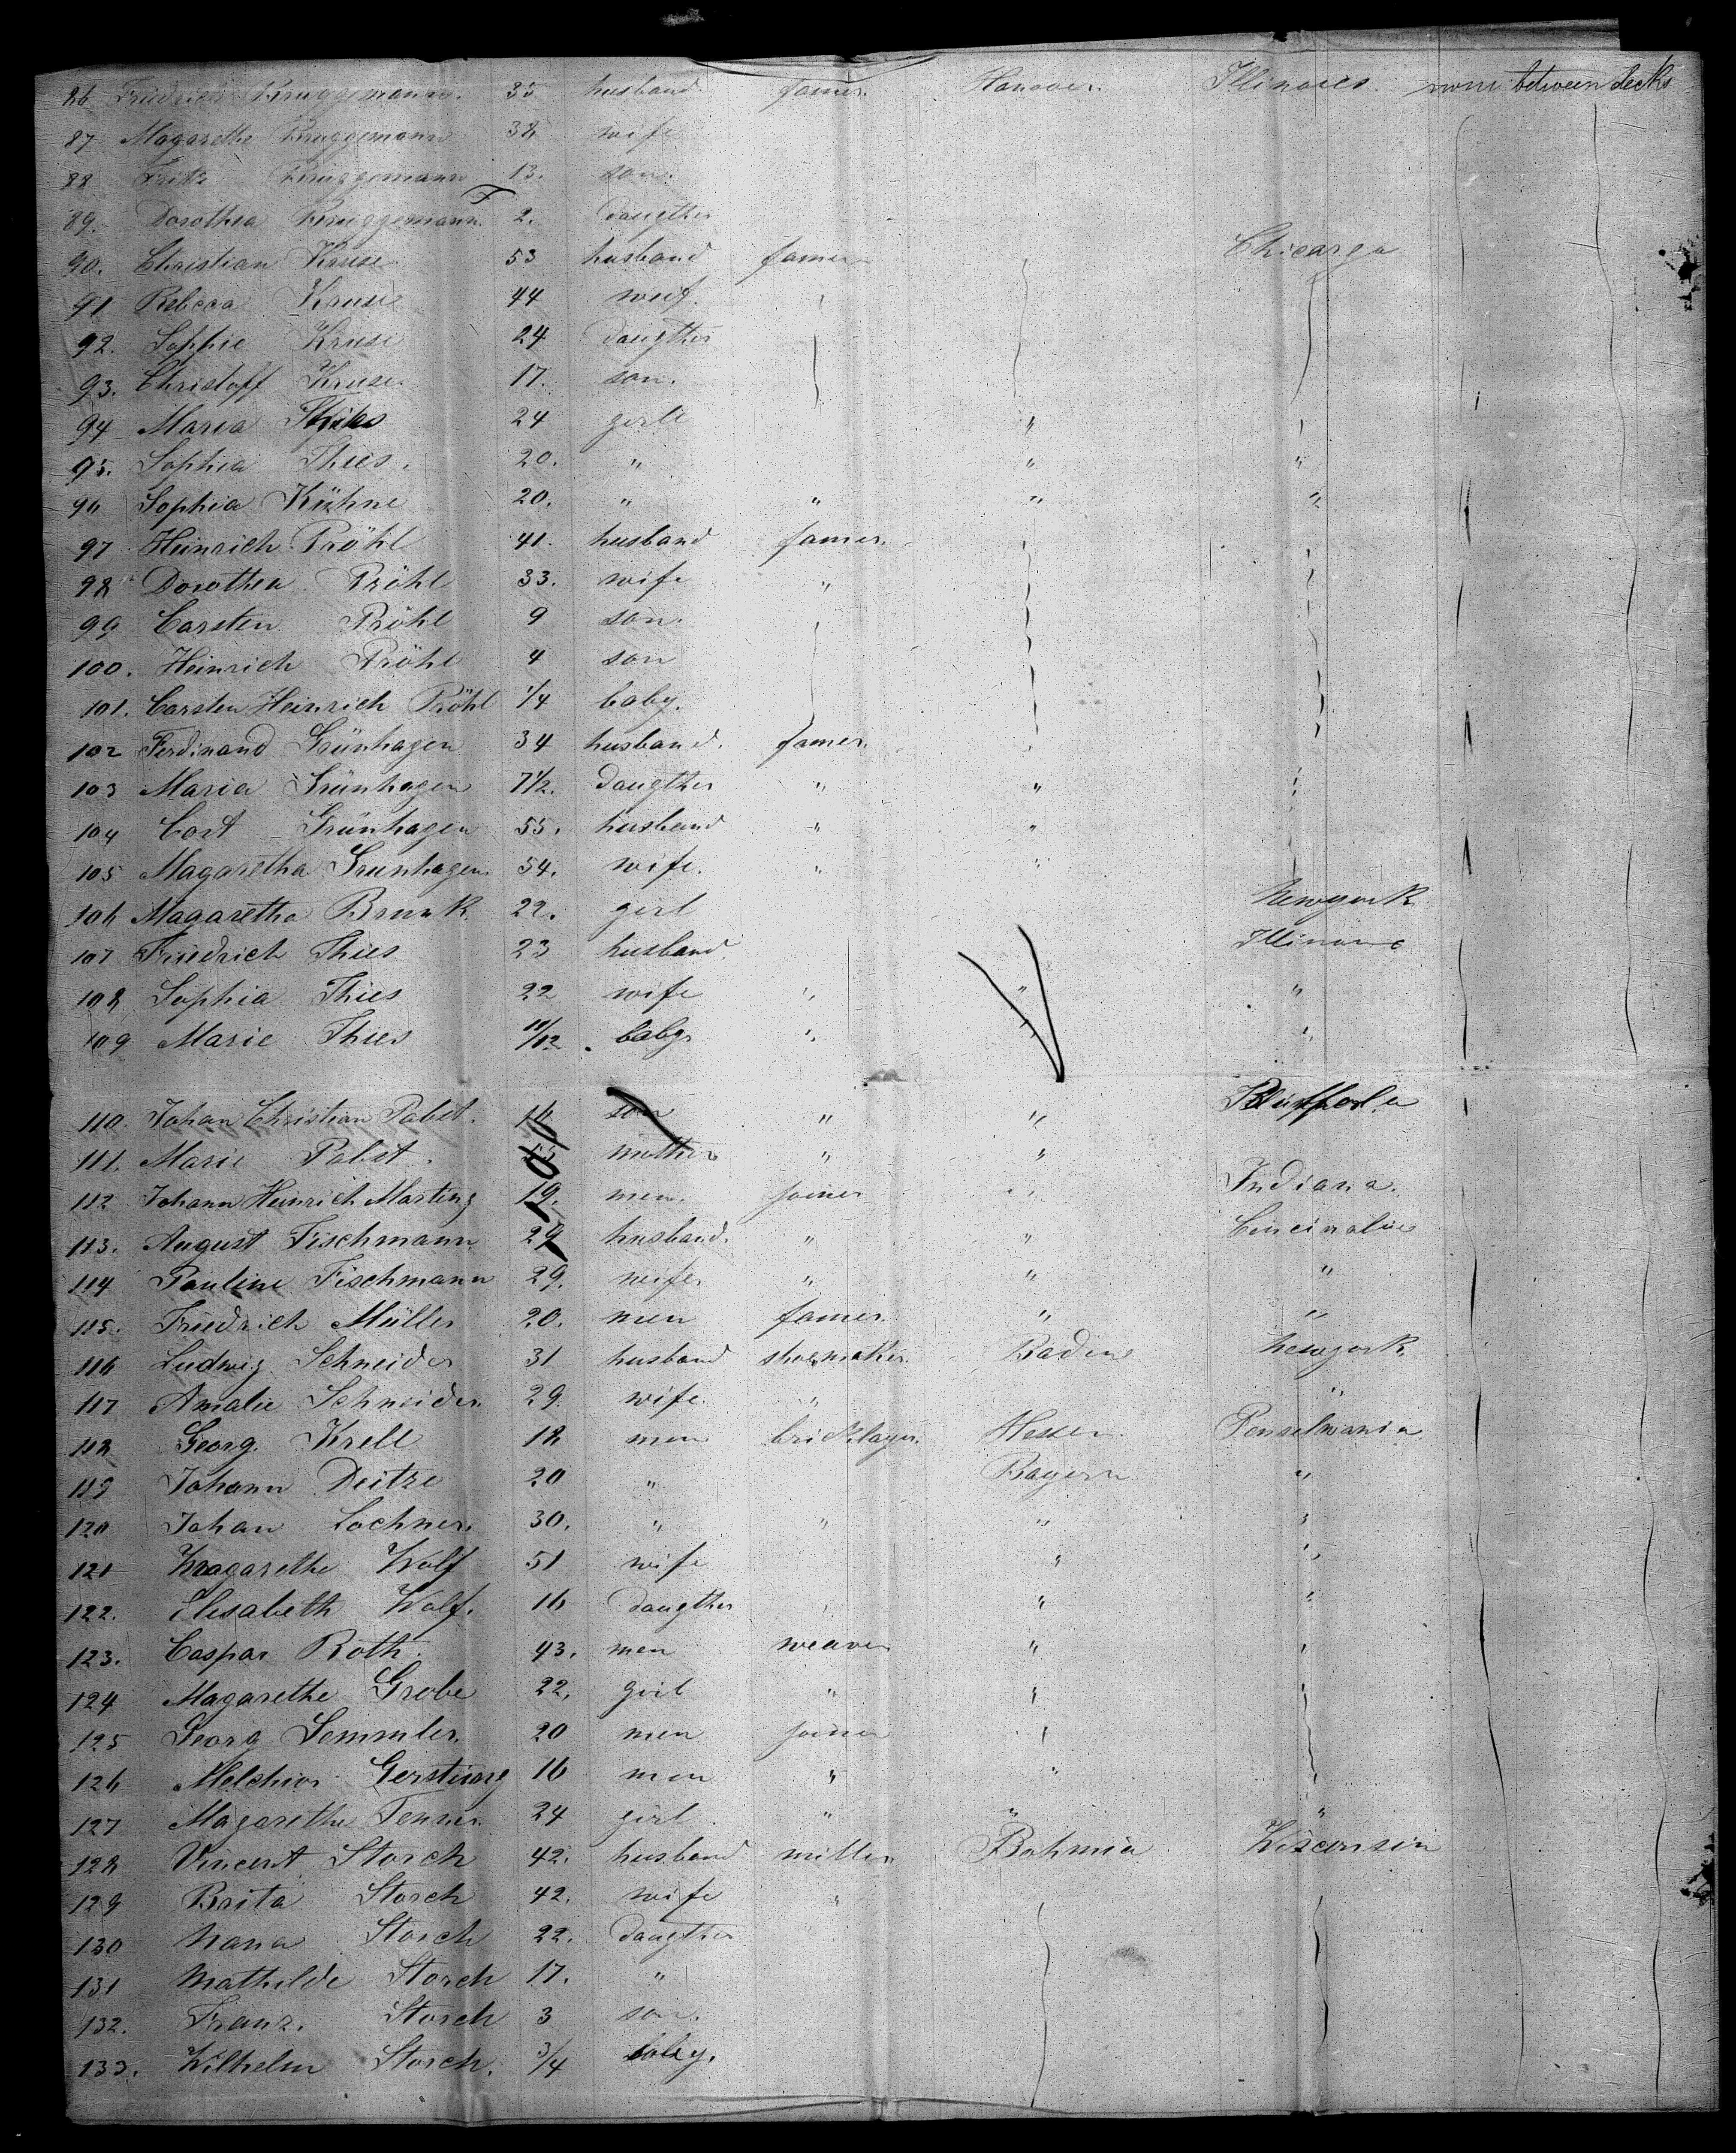 86 Friedrich Bruggemann. 35 husband. famer. Hanover. Illinoies. between decks
87 Magarethe Bruggemann 38 wife
88 Fritz Bruggemann 13. son.
89. Dorothea Bruggemann. F 2. daugther
90. Christian Kruse 53 husband famer Chicargo
91 Rebecca Kruse 44 weif.
92. Sophie Kruse 24 daugther
93. Christoff Kruse 17. son.
94 Maria 24 girle " "
95. Sophia Thies. 20. " " "
96 Sophia Kühne 20. " " " "
97 Heinrich Pröhl 41. husband famer.
98 Dorothea Pröhl 33. wife "
99 Carsten Pröhl 9 son.
100. Heinrich Pröhl 4 son
101. Carsten Heinrich Pröhl 1/4 baby.
102 Ferdinand Grünhagen 34 husband. famer.
103 Maria Grünhagen 7 1/2. daugther " "
104 Cort Grünhagen 55. husband " "
105 Magaretha Grunhagen. 54. wife. " "
106 Magaretha Brunk. 22. girl Newyork
107 Friedrich Thies 23 husband.
108 Sophia Thies 22 wife " " "
109 Marie Thies 11/12. baby " " "
110. Johan Christian Pabst. 16 son " "
111. Marie Pabst. mother " "
112 Johann Heinrich Marting 19. men. joiner " Indiana.
113. August Fischmann 29 husband. " " Cincinatie
114 Pauline Fischmann 29. weife " " "
115. Friedrich Müller 20. men famer. " "
116 Ludwig Schneider 31 husband shoemaker. Baden Newyork.
117 Amalie Schneider. 29. wife. " "
118 Georg. Krell 18 men bricklayer. Hessen. Penselwania
119 Johann Deitze 20 " Bayern "
120 Johan Lochner. 30. " " " "
121 Magarethe Wolf 51 wife " "
122. Elesabeth Wolf. 16 daugther " "
123. Caspar Roth. 43. men weaver " "
124 Magarethe Grobe 22. girl " " "
125 Georg Semmler. 20 men joiner "
126 Melchior Gerstung 16 men " "
127 Magarethe Tenner. 24 girl. " " "
128 Vincent Storch 42. husband miller. Bohmia Wisconsin
129 Brita Storch 42. wife "
130 Nana Storch 22. daugther
131 Mathilde Storch 17. "
132. Franz. Storch 3 son.
133. Wilhelm Storch. 3/4 baby.